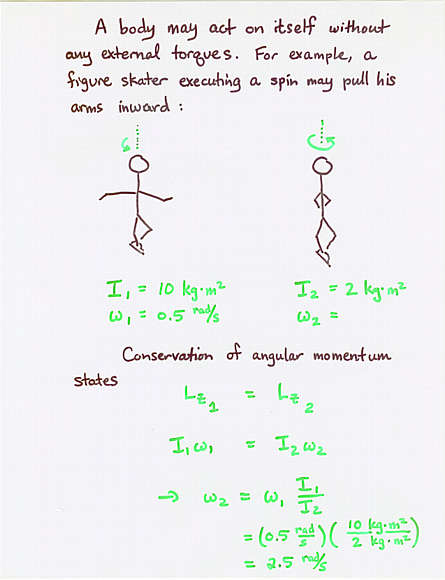 A body may act on itself without
any external torques. For example, a
figure skater executing a spin may pull his
arms inward:
I₁ = 10 kg·m² I₂ = 2 kg·m²
ω₁ = 0.5 rad/s ω₂ =
Conservation of angular momentum
states
L_z₁ = L_z₂
I₁ω₁ = I₂ω₂
→ ω₂ = ω₁ I₁/I₂
= (0.5 rad/s)(10 kg·m²/2 kg·m²)
= 2.5 rad/s